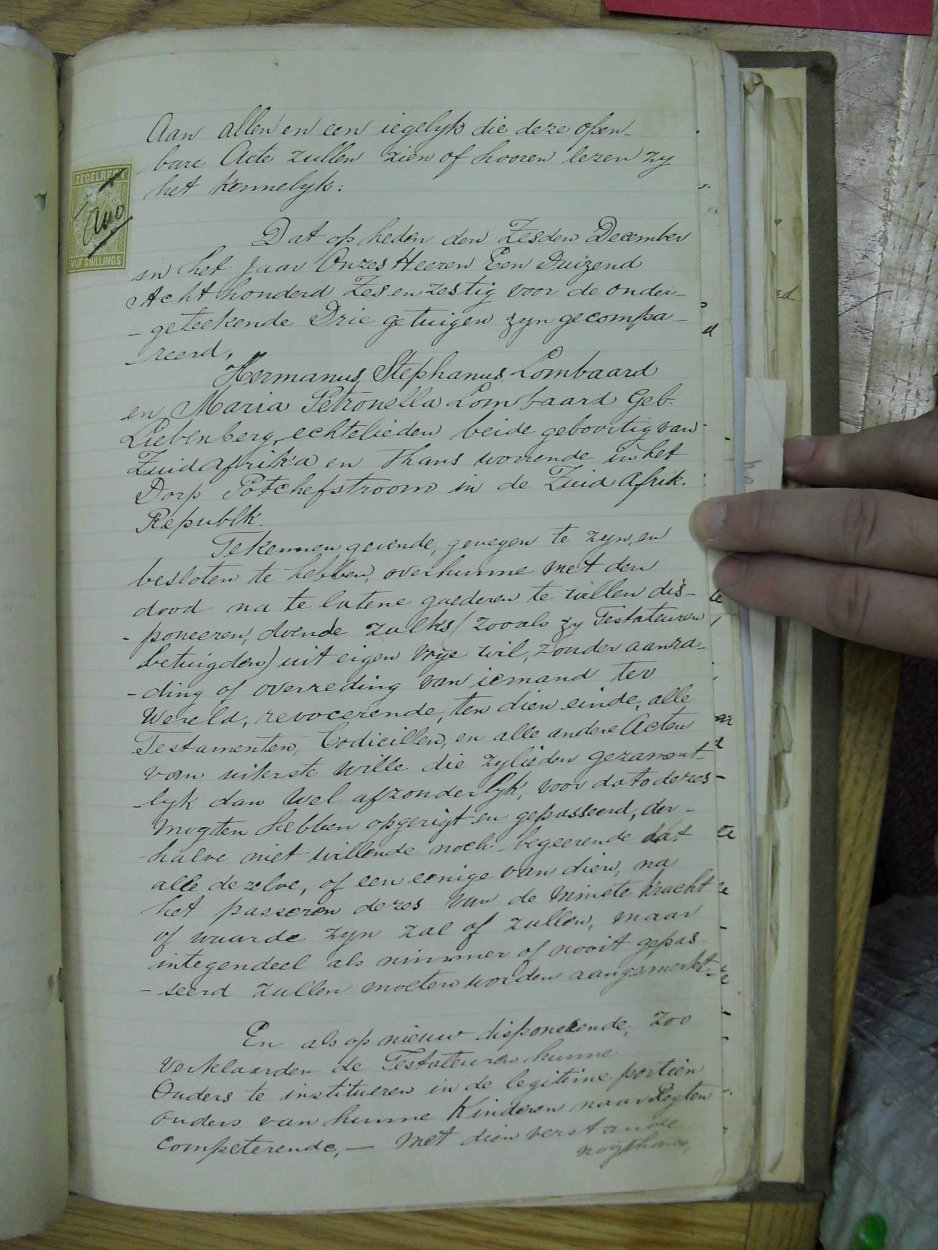 Aan allen en een iegelyk die deze open-
bare Acte zullen zien of hooren lezen zy
het kennelyk:
ZEGELRE
VIJF SHILLINGS
Dat op heden den Zesden December
in het Jaar Onzes Heeren Een Duizend
Acht honderd Zes en zestig voor de onder-
-geteekende Drie getuigen zyn gecompa-
-reerd,
Hermanus Stephanus Lombaard
en Maria Petronella Lombaard Geb.
Liebenberg, echtelieden beide geboortig van
Zuid Afrika en thans woonende in het
Dorp Potchefstroom in de Zuid Afrik.
Republk.
Te kennen gevende, genegen te zyn, en
besloten te hebben, over hunne met den
dood na te latene goederen te willen dis-
-poneeren, doende zulks (zooals zy Testateuren
betuigden) uit eigen vrye wil, zonder aanra-
-ding of overreding van iemand ter
Wereld, revocerende, ten dien einde, alle
Testamenten, Codicillen, en alle andere Acten
van uiterste wille die zylieden gezament-
-lyk dan wel afzonderlyk, voor dato dezes
mogten hebben opgerigt en gepasseerd, der-
-halve niet willende noch begeerende dat
alle dezelve, of een eenige van dien, na
het passeren dezes van de minste kracht
of waarde zyn zal of zullen, maar
integendeel als nimmer of nooit gepas-
-seerd zullen moeten worden aangemerkt.
En als op nieuw disponeerende, zoo
verklaarden de Testateuren hunne
Ouders te institueren in de legitime portien
ouders van hunne Kinderen naar Regten
competerende, — met dien verstande
nogthans,